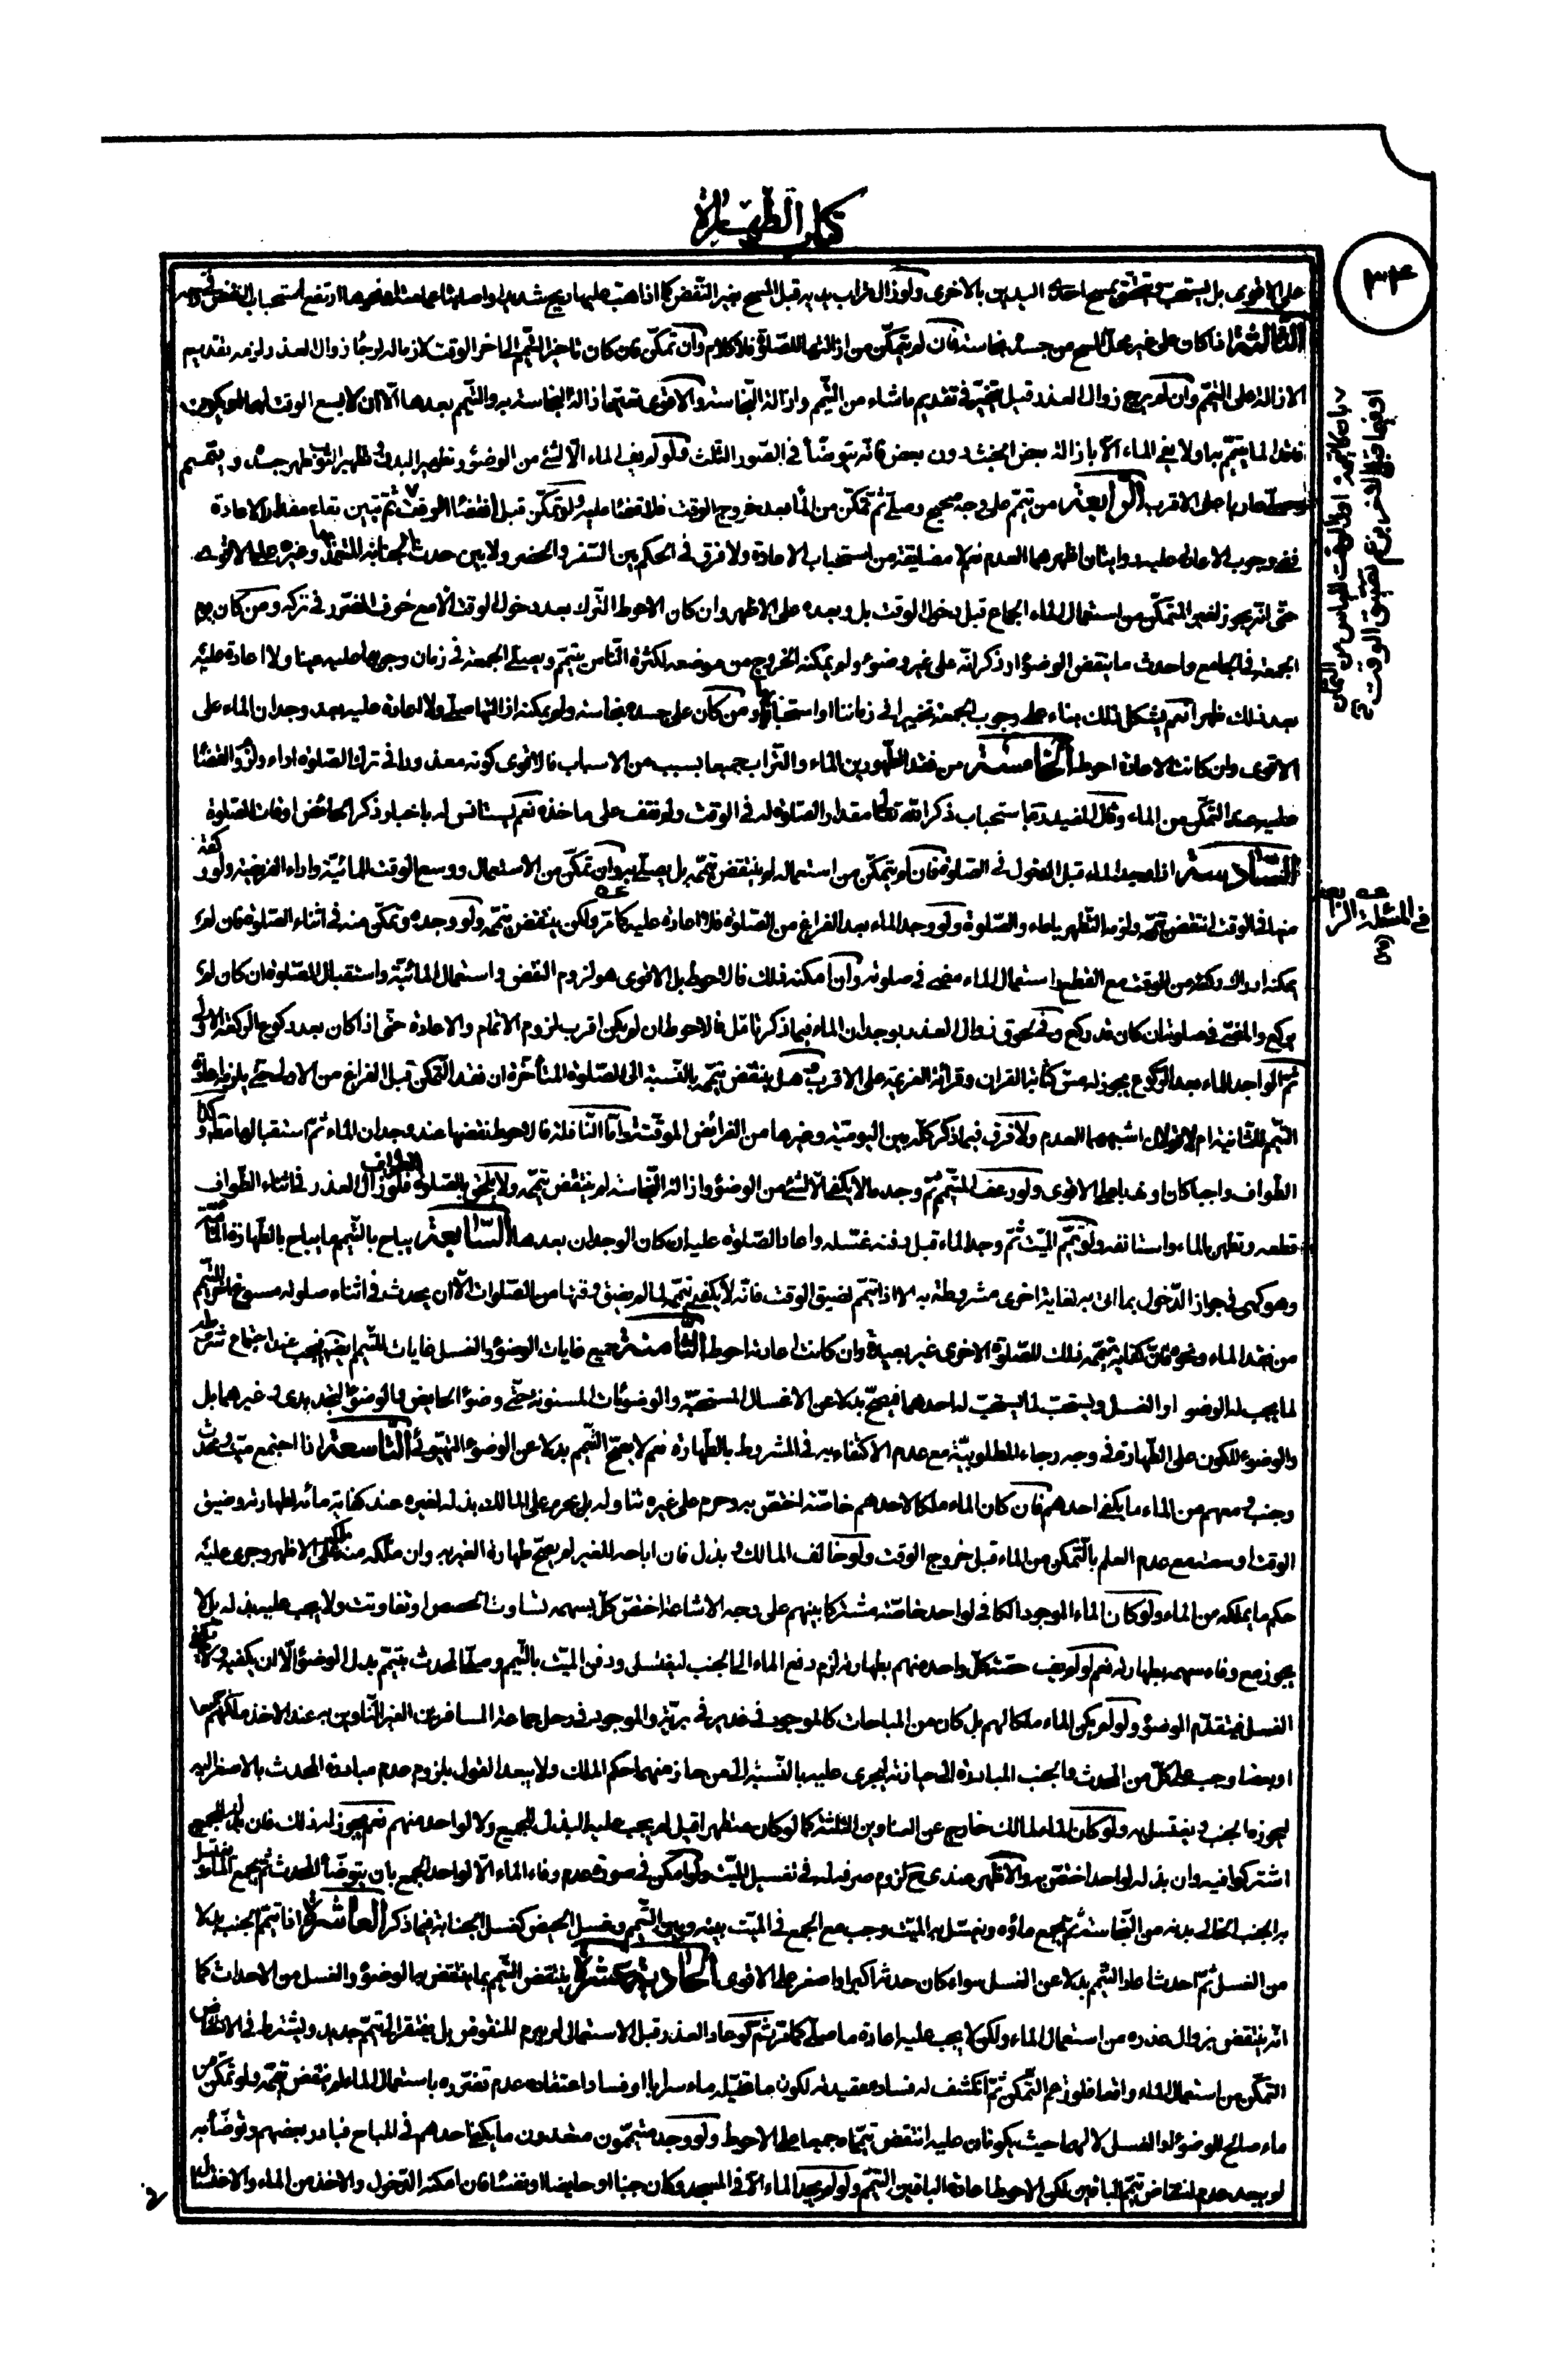 كتاب الطهارة
٣٤
على الاقوى بل يستحب ويتحقق بمسح احدى اليدين بالاخرى ولو زال تراب يديه قبل المسح بغير النفض كما اذا هبت عليها ريح شديدة او اصابتا ارتفع استحباب النفض
الثالثة اذا كان على غير محل المسح من جسده نجاسة فان لم يتمكن من ازالتها للصلوة فلا كلام وان تمكن فان كان تاخير التيمم الى اخر الوقت لازما له لرجاء زوال العذر لزمه تقديم
الازالة على التيمم وان لم يرج زوال العذر قبل تخير في تقديم ما شاء من التيمم وازالة النجاسة والاقوى تعين ازالة النجاسة به والتيمم بعدها الا ان لا يسع الوقت لهما او يكون
فاقدا لما يتيمم به ولا يفي الماء الا بازالة بعض الخبث دون بعض فانه يتوضأ في الصور الثلث ولو لم يف الماء الا لشئ من الوضوء وتطهير البدن او تطهير الثوب طهر جسده ويتيمم
وصلى عاريا على الاقرب الرابعة من تيمم على وجه صحيح وصلى ثم تمكن من الماء بعد خروج الوقت فلا قضاء عليه ولو تمكن قبل انقضاء الوقت ثم تبين بقاء مقدار الاعادة
ففي وجوب الاعادة عليه وجهان اظهرهما العدم نعم لا مضايقة من استحباب الاعادة ولا فرق في الحكم بين السفر والحضر ولا بين حدث الجنابة المتعمد بها وغيره على الاقوى
حتى انه يجوز لغير المتمكن من استعمال الماء الجماع قبل دخول الوقت بل وبعده على الاظهر وان كان الاحوط الترك بعد دخول الوقت الا مع خوف الضرر في تركه ومن كان يوم
الجمعة في الجامع واحدث ما ينقض الوضوء او ذكر انه على غير وضوء ولم يمكنه الخروج من موضعه لكثرة الناس يتيمم ويصلي الجمعة في زمان وجوبها عليه عينا ولا اعادة عليه
بعد ذلك ظهرا نعم يشكل ذلك بناء على وجوب الجمعة تخييرا في زماننا او استحبابها ومن كان على جسده نجاسة ولم يمكنه ازالتها صلى ولا اعادة عليه بعد وجدان الماء على
الاقوى وان كانت الاعادة احوط الخامسة من فقد الطهورين الماء والتراب جميعا بسبب من الاسباب فالاقوى كونه معذورا في ترك الصلوة اداء ولزوم القضاء
عليه بعد التمكن من الماء وقال المفيد ره باستحباب ذكر الله تعالى مقدار الصلوة له في الوقت ولم نقف على ماخذه نعم يستانس له باخبار ذكر الحائض اوقات الصلوة
السادسة اذا وجد الماء قبل الدخول في الصلوة فان لم يتمكن من استعماله لم ينتقض تيممه بل يصلي به وان تمكن من الاستعمال ووسع الوقت للمائية واداء الفريضة ولو ركعة
منها في الوقت انتقض تيممه ولزمه التطهر بالماء والصلوة ولو وجد الماء بعد الفراغ من الصلوة فلا اعادة عليه كما مر ولكن ينتقض تيممه ولو وجده وتمكن منه في اثناء الصلوة فان لم
يمكنه ادراك ركعة من الوقت مع القطع واستعمال الماء مضى في صلوته وان امكنه ذلك فالاحوط بل الاقوى هو لزوم النقض واستعمال المائية واستقبال الصلوة ان كان لم
يركع والمضي في صلوته ان كان قد ركع وفي لحوق زوال العذر بوجدان الماء فيما ذكر تامل فالاحوط ان لم يكن اقرب لزوم الاتمام والاعادة حتى اذا كان بعد ركوع الركعة الاولى
ثم الواجد للماء بعد الركوع يجوز له مس كتابة القران وقرائة العزيمة على الاقرب وهل ينتقض تيممه بالنسبة الى الصلوة المتأخرة ان فقد التمكن قبل الفراغ من الاولى حتى يلزمه اعادة
التيمم للثانية ام لا قولان اشبههما العدم ولا فرق فيما ذكر كله بين اليومية وغيرها من الفرائض الموقتة واما النافلة فالاحوط نقضها عند وجدان الماء ثم استقبالها وكذا
الطواف واجبا كان او ندبا على الاقوى ولو رعف المتيمم ثم وجد ما لا يكفي الا لشئ من الوضوء وازالة النجاسة لم ينتقض تيممه ولا يلحق بالصلوة الطواف فلو زال العذر في اثناء الطواف
قطعه وتطهر بالماء واستانفه ولو تيمم الميت ثم وجد الماء قبل دفنه غسله واعاد الصلوة عليه ان كان الوجدان بعدها السابعة يباح بالتيمم ما يباح بالطهارة المائية
وهو كهي في جواز الدخول بما اتى به لغاية اخرى مشروطة به الا اذا تيمم لضيق الوقت فانه لا يكفي تيممه لما لم يضق وقتها من الصلوات الا ان يحدث في اثناء صلوته مسوغ اخر للتيمم
من فقد الماء ونحوه فان كفاية تيممه ذلك للصلوة الاخرى غير بعيدة وان كانت اعادته احوط الثامنة جميع غايات الوضوء والغسل غايات للتيمم ايضا فيجب عند اجتماع شرائطه
لما يجب له الوضوء او الغسل ويستحب لما يستحب له احدهما فيصح بدلا عن الاغسال المستحبة والوضوئات المسنونة حتى وضوء الحايض والوضوء التجديدي وغيرهما بل
والوضوء للكون على الطهارة في وجه رجاء للمطلوبية مع عدم الاكتفاء به في المشروط بالطهارة نعم لا يصح التيمم بدلا عن الوضوء التهيوئي التاسعة اذا اجتمع ميت ومحدث
وجنب ومعهم من الماء ما يكفي احدهم فان كان الماء ملكا لاحدهم خاصة اختص به وحرم على غيره تناوله بل يحرم على المالك بذله لغيره عند كفاية مائه لطهارته وضيق
الوقت او سعته مع عدم العلم بالتمكن من الماء قبل خروج الوقت ولو خالف المالك وبذل فان اباحه للغير لم يصح طهارة الغير به وان ملكه منه ملكه على الاظهر وجرى عليه
حكم ما يملكه من الماء ولو كان الماء الموجود الكافي لواحد خاصة مشتركا بينهم على وجه الاشاعة اختص كل بسهمه تساوت الحصص او تفاوتت ولا يجب عليه بذله بل لا
يجوز مع وفاء سهمه بطهارته نعم لو لم يف حصة كل واحد منهم بطهارته لزم دفع الماء الى الجنب ليغتسل ودفن الميت بالتيمم وصلى المحدث بتيمم بدل الوضوء الا ان يكفيه ولا يكفي
الغسل فيتقدم الوضوء ولو لم يكن الماء ملكا لهم بل كان من المباحات كالموجود في غدير في برية والموجود في رحل جماعة المسافرين الغير الناوين به عند الاخذ ملكهم جميعا
او بعضا وجب على كل من المحدث والجنب المبادرة الى حيازته ليجرى عليه بالنسبة الى من حاز منهما حكم الملك ولا يبعد القول بلزوم عدم مبادرة المحدث بالاصغر اليه
ليحوزه الجنب فيغتسل به ولو كان الماء لمالك خارج عن العناوين الثلثة كما لو كان متطهرا قبل لم يجب عليه البذل للجميع ولا لواحد منهم نعم يجوز له ذلك فان بذله للجميع
اشتركوا فيه وان بذله لواحد اختص به والاظهر عندي ح لزوم صرفه له في تغسيل الميت ولو امكن في صورة عدم وفاء الماء الا لواحد الجمع بان يتوضأ المحدث ثم يجمع الماء ويغتسل
به الجنب الخالي بدنه من النجاسة ثم يجمع ماؤه ويغسل به الميت وجب مع الجمع في الميت بينه وبين التيمم وغسل الحيض كغسل الجنابة فيما ذكر العاشرة اذا تيمم الجنب بدلا
من الغسل ثم احدث اعاد التيمم بدلا عن الغسل سواء كان حدثه اكبر او اصغر على الاقوى الحادية عشرة ينتقض التيمم بما ينتقض به الوضوء والغسل من الاحداث كما
انه ينتقض بزوال عذره من استعمال الماء ولكن لا يجب عليه اعادة ما صلى كما مر ثم لو عاد العذر قبل الاستعمال لم يرجع المنقوض بل يفتقر الى تيمم جديد ويشترط في الانتقاض
التمكن من استعمال الماء واقعا فلو زعم التمكن ثم انكشف له فساد عقيدته لكون ما تخيله ماء سرابا او فساد اعتقاده عدم تضرره باستعمال الماء لم ينتقض تيممه ولو تمكن من
ماء صالح للوضوء او الغسل لا لهما حيث يكونان عليه انتقض تيمماه جميعا على الاحوط ولو وجد متيممون متعددون ما يكفي احدهم في المباح فبادر بعضهم وتوضأ به
لم يبعد عدم انتقاض تيمم الباقين لكن الاحوط اعادة الباقين التيمم ولو لم يجد الماء الا في المسجد وكان جنبا او حايضا او نفساء فان امكنه الدخول والاخذ من الماء والاغتسال
في المسئلة الرابعة